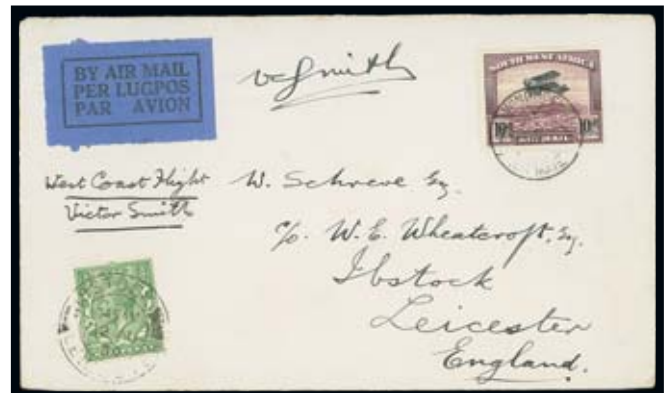 BY AIR MAIL
PER LUGPOS
PAR AVION
V Smith
SOUTH WEST AFRICA
10d 10d
West Coast Flight
Victor Smith
W. Schreve Esq.
c/o. W. E. Wheatcroft, Esq.
Ibstock
Leicester
England.